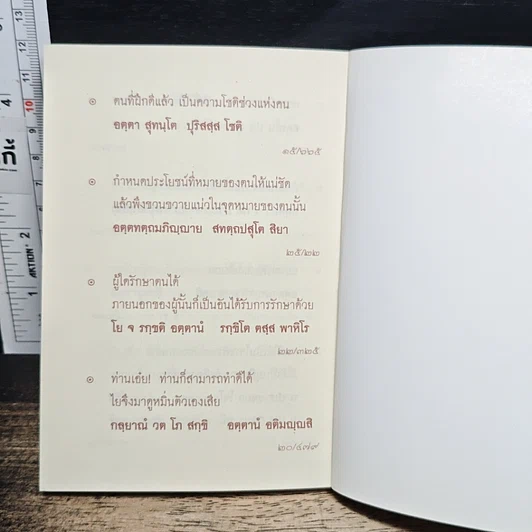 ๏ ตนที่ฝึกดีแล้ว เป็นความโชติช่วงแห่งคน
อตฺตา สุทนฺโต ปุริสสฺส โชติ
๑๕/๖๖๕
๏ กำหนดประโยชน์ที่หมายของตนให้แน่ชัด
แล้วพึงขวนขวายแน่วในจุดหมายของตนนั้น
อตฺตทตฺถมภิญฺญาย สทตฺถปสุโต สิยา
๒๕/๒๒
๏ ผู้ใดรักษาตนได้
ภายนอกของผู้นั้นก็เป็นอันได้รับการรักษาด้วย
โย จ รกฺขติ อตฺตานํ รกฺขิโต ตสฺส พาหิโร
๒๒/๓๒๕
๏ ท่านเอ๋ย! ท่านก็สามารถทำดีได้
ไยจึงมาดูหมิ่นตัวเองเสีย
กลฺยาณํ วต โภ สกฺขิ อตฺตานํ อติมญฺญสิ
๒๐/๔๗๙
4
10
3
2
1
ACTION